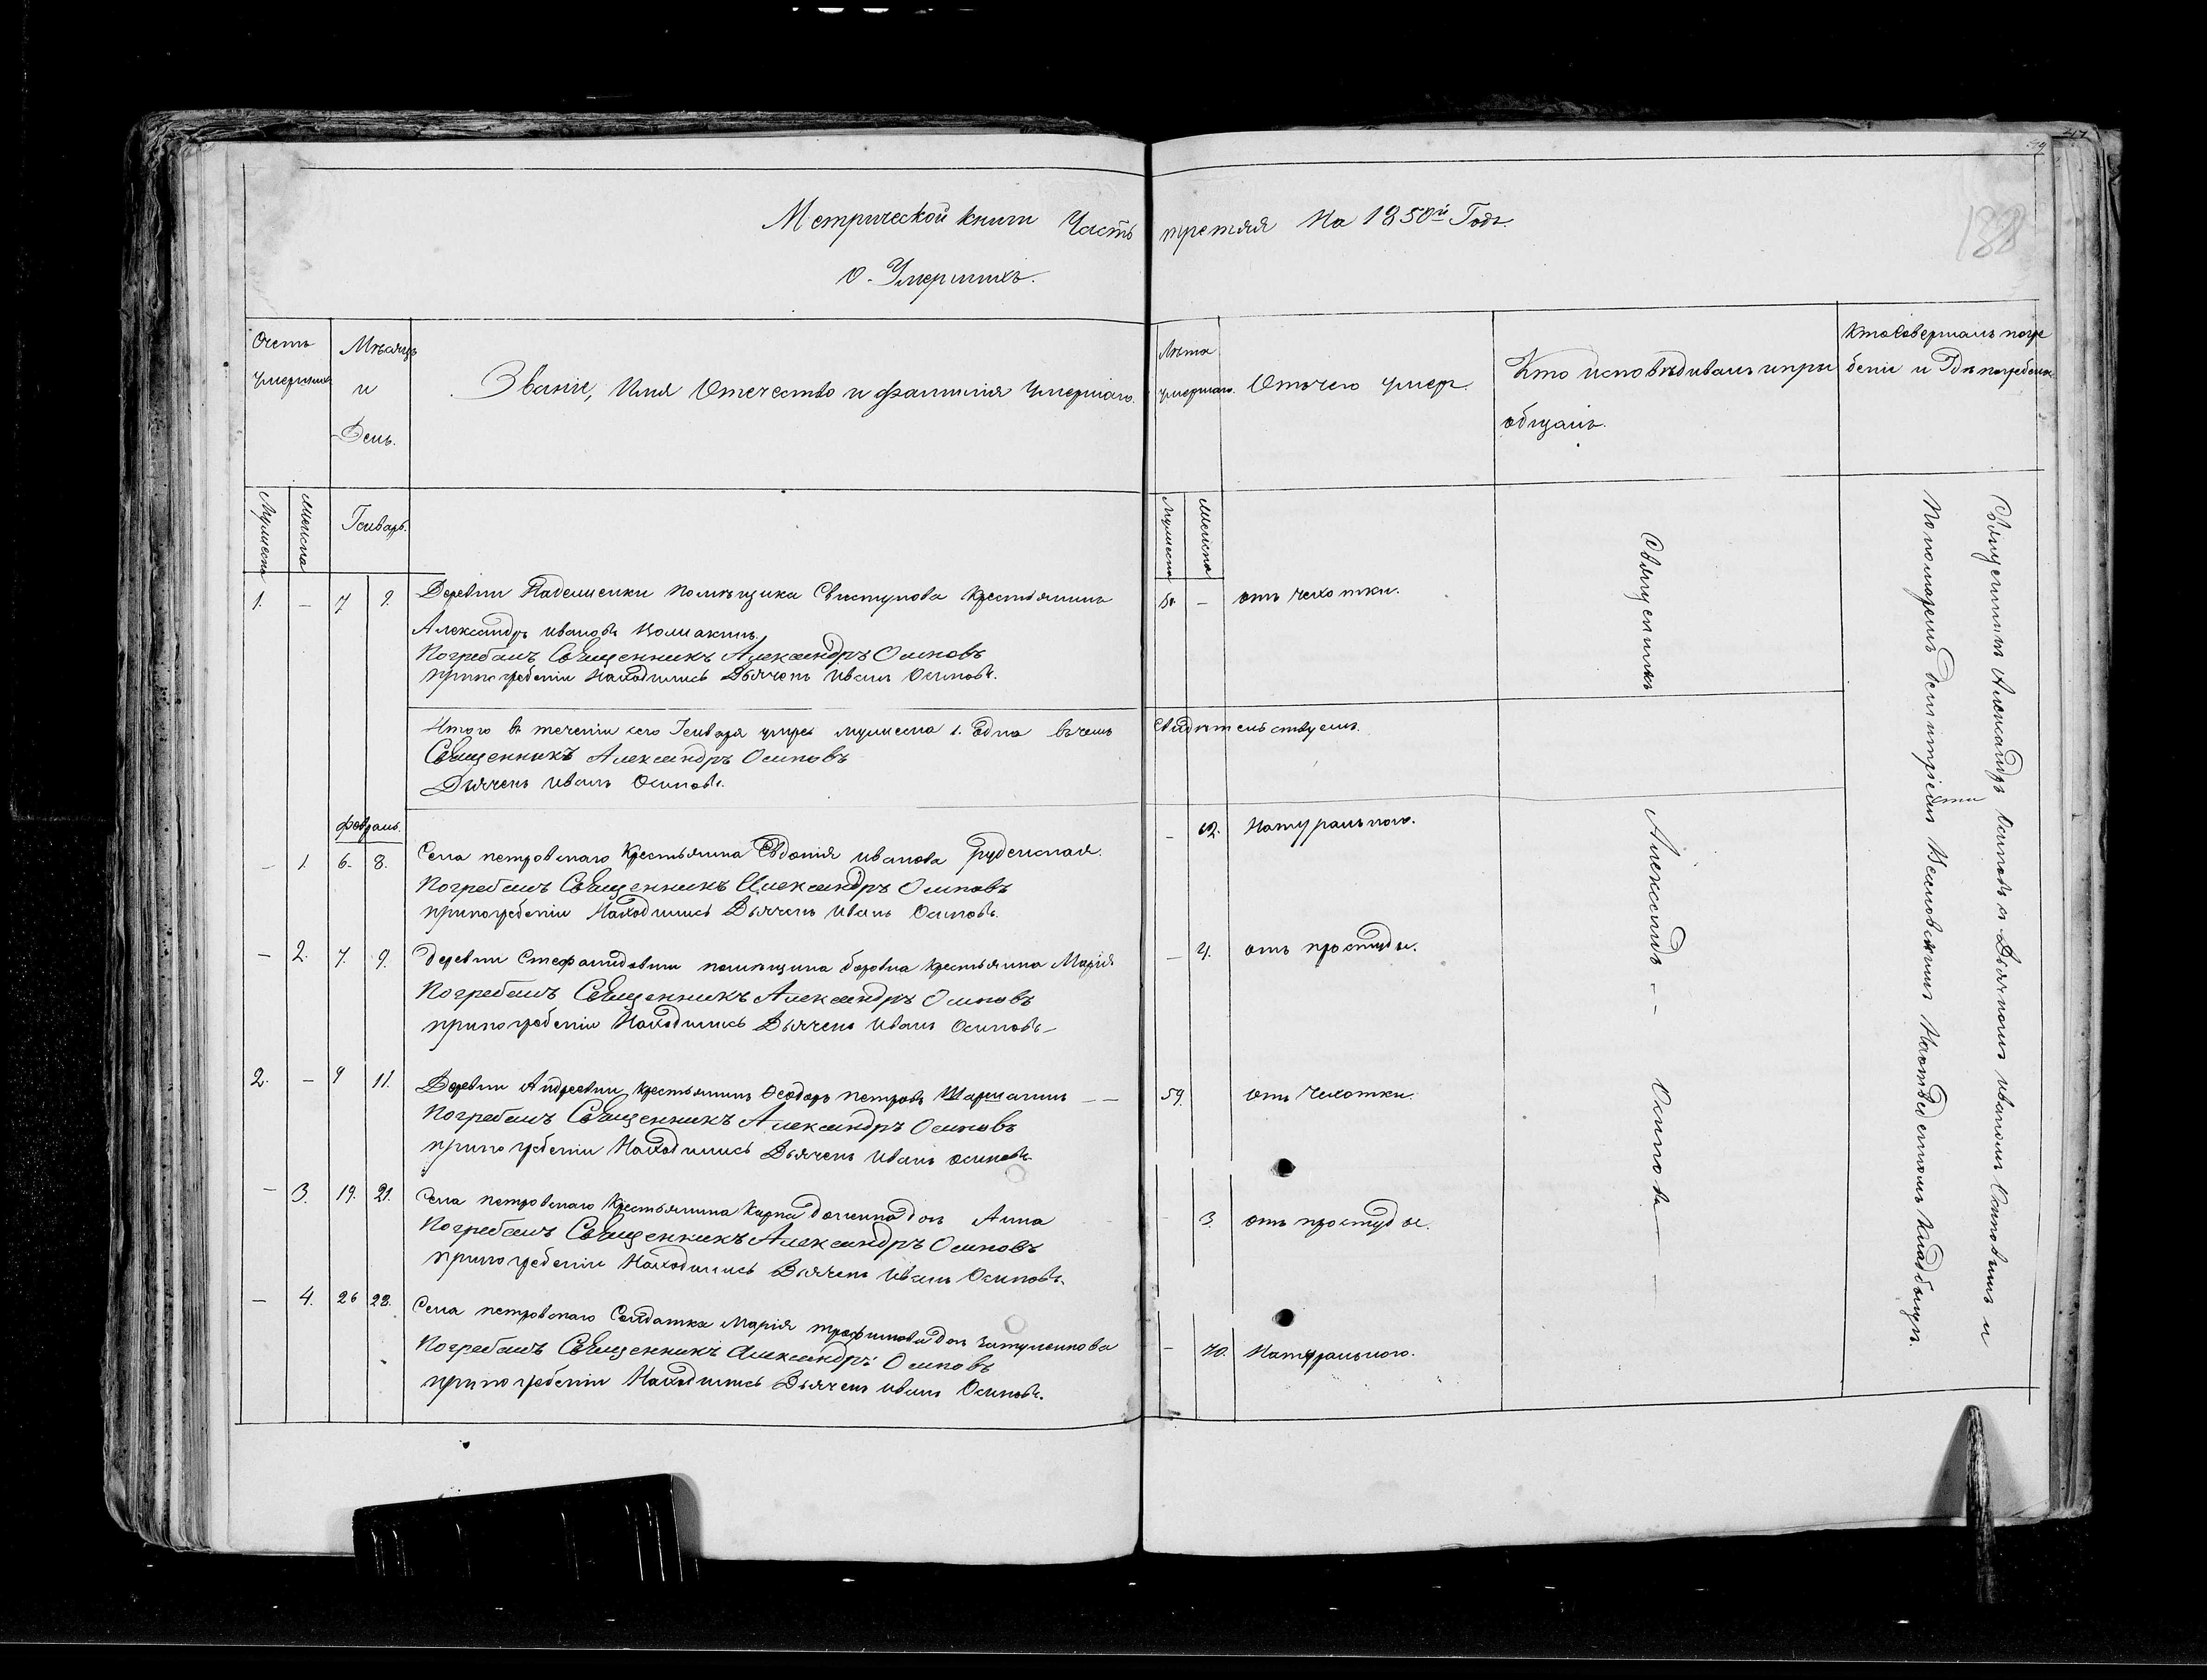 Метрической книги Часть третяя На 1850й Годъ.
О Умершихъ.
Счетъ умершихъ
Мѣсяцъ и День.
Званіи, Имя Отечество и фамилія Умершаго.
Лѣта умершаго.
Отъ чего умеръ.
Кто исповѣдивалъ и при
общалъ.
Кто совершалъ погре
беніе и Гдѣ погребены
Мужеска
Женска
Генварь.
Мужеска
Женска
1. — 7 9. Деревни помѣщика Свистунова Крестьянинъ
Александръ Ивановъ
— отъ чехотки.
Погребалъ Священникъ Александръ Осиповъ
при погребеніи Находились Дьячекъ Иванъ Осиповъ.
Итого въ теченіи сего Генваря умре мужеска 1. Една въ чемъ Свидѣтельствуемъ.
Священникъ Александръ Осиповъ
Дьячекъ Иванъ Осиповъ.
Февраль.
— 1 6. 8. Села петровскаго Крестьянка Евдокія Иванова — 62. Натурального.
Погребалъ Священникъ Александръ Осиповъ
при погребеніи Находились Дьячекъ Иванъ Осиповъ.
— 2. 7. 9. Деревни помѣщика Крестьянина Марія — 4. отъ простуды.
Погребалъ Священникъ Александръ Осиповъ
при погребеніи Находились Дьячекъ Иванъ Осиповъ —
2. — 9 11. Деревни Андреевки Крестьянинъ Ѳеодоръ петровъ — — 59. отъ Чехотки.
Погребалъ Священникъ Александръ Осиповъ
при погребеніи Находились Дьячекъ Иванъ Осиповъ.
— 3. 19. 21. Села петровскаго Крестьянина Карпа дочь Анна — 3. отъ простуды.
Погребалъ Священникъ Александръ Осиповъ
при погребеніи Находились Дьячекъ Иванъ Осиповъ.
— 4. 26 28. Села петровскаго Солдатка Марія трофимова дочь — 70. Натурального.
Погребалъ Священникъ Александръ Осиповъ
при погребеніи Находились Дьячекъ Иванъ Осиповъ.
Священникъ Александръ — — Осиповъ —
Священникъ Александръ Осиповъ съ Дьячкомъ Иваномъ Осиповымъ и
Пономаремъ Димитріемъ На отведенномъ Кладбищѣ.